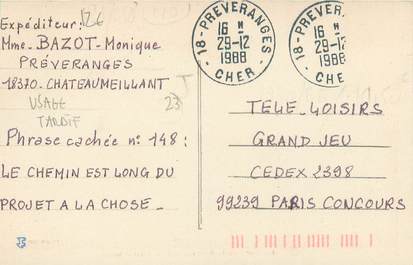 Expéditeur: 26
Mme. BAZOT-Monique
PRÉVERANGES
18370-CHATEAUMEILLANT T
USAGE 23
TARDIF
Phrase cachée n° 148:
LE CHEMIN EST LONG DU
PROJET A LA CHOSE_
18-PREVERANGES-CHER-
16 H
29-12
1988
18-PREVERA
16 H
29-12
1988
-CHE
TELE-LOISIRS
GRAND JEU
CEDEX 2398
99239 PARIS CONCOURS